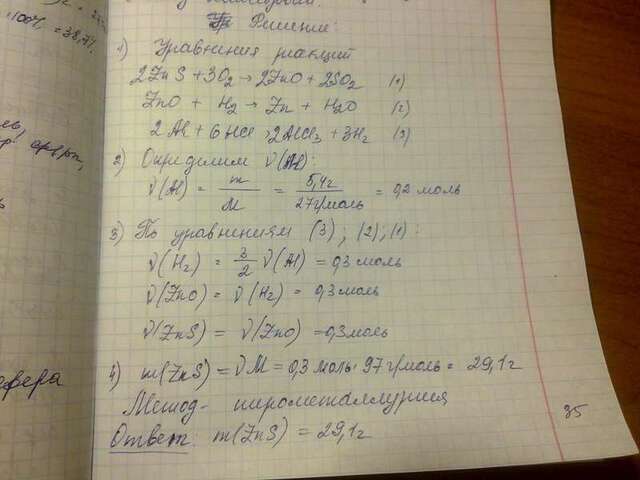 100% = 38,7%
Решение:
1) Уравнения реакций
2ZnS + 3O₂ → 2ZnO + 2SO₂ (1)
ZnO + H₂ → Zn + H₂O (2)
2Al + 6HCl → 2AlCl₃ + 3H₂ (3)
2) Определим ν(Al):
ν(Al) = m/M = 5,4г/27г/моль = 0,2 моль
3) По уравнениям (3); (2); (1):
ν(H₂) = 3/2 ν(Al) = 0,3 моль
ν(ZnO) = ν(H₂) = 0,3 моль
ν(ZnS) = ν(ZnO) = 0,3 моль
4) m(ZnS) = νM = 0,3 моль · 97 г/моль = 29,1 г
Метод - пирометаллургия
Ответ: m(ZnS) = 29,1г
35